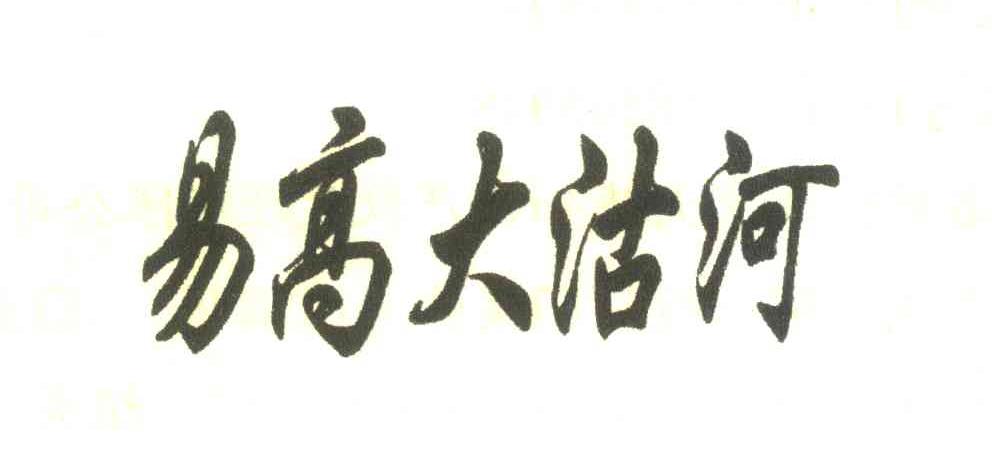 易高大沽河